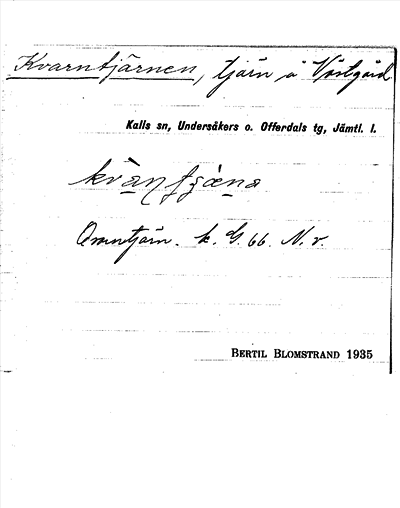 Kvarntjärnen, tjärn å Västgård
Kalls sn, Undersåkers o. Offerdals tg, Jämtl. l.
kvàn tjæ̀na
k. G. 66. N. v.
BERTIL BLOMSTRAND 1935